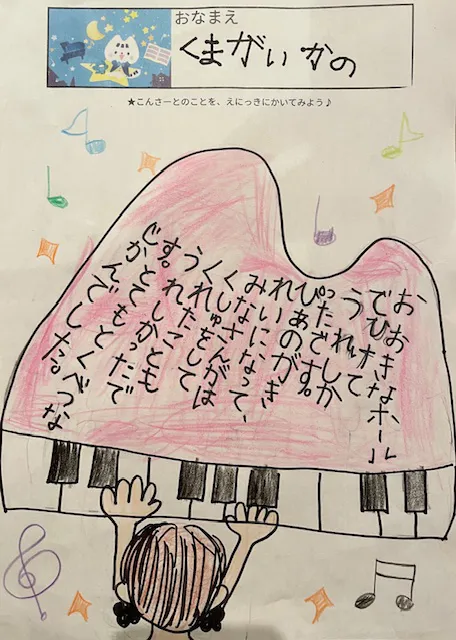 おなまえ
くまがい かの
★こんさーとのことを、えにっきにかいてみよう♪
お、おきなホール
でひけて
うれしか
ったです。
ぴあのがき
れいになって、
みなさんがは
くしゅをして
くれたことも
うれしかったで
す。とてもとくべつな
じかんでした。